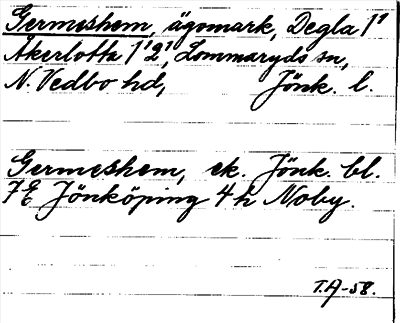 Germeshem, ägomark, Degla 1¹
Åkerlotta 1¹2¹, Lommaryds sn,
N. Vedbo hd, Jönk. l.
Germeshem, ek. Jönk. bl.
7E Jönköping 4h Noby.
T.A-58.